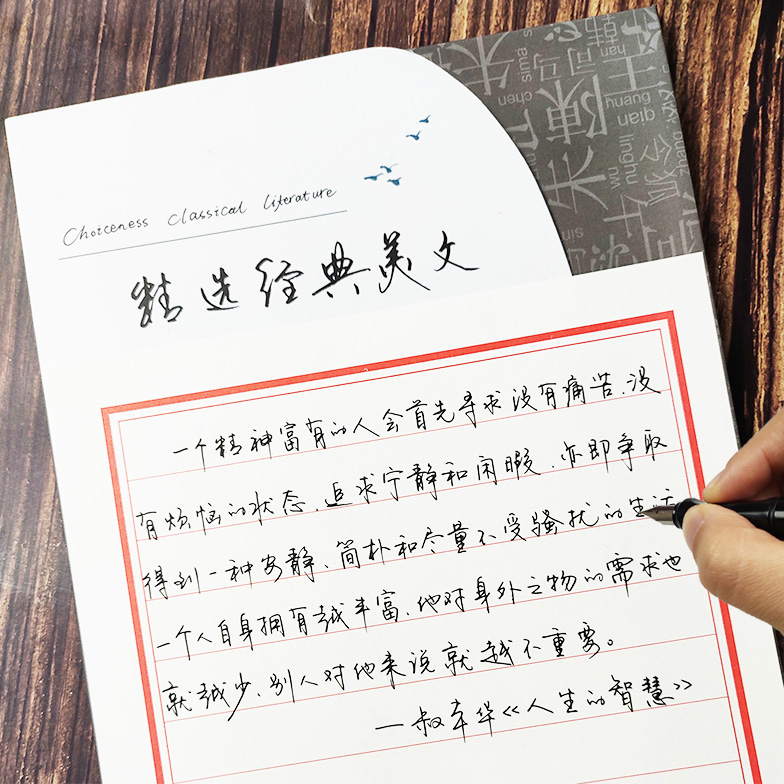 Choiceness classical literature
精选经典美文
一个精神富有的人会首先寻求没有痛苦、没
有烦恼的状态，追求宁静和闲暇，亦即争取
得到一种安静、简朴和尽量不受骚扰的生活
一个人自身拥有越丰富，他对身外之物的需求也
就越少，别人对他来说就越不重要。
—叔本华《人生的智慧》
朱
sima
司马
han
chen
陳
王
huang
qian
linghu
令狐
朱
沈